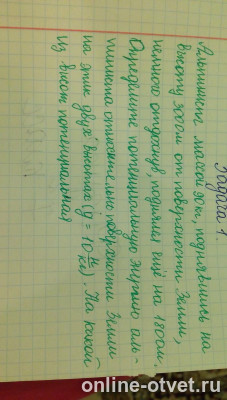 Задача 1.
Альпинист массой 80т, поднявшись на
высоту 300м от поверхности Земли,
немного отдохнув, поднялся ещё на 180м.
Определите потенциальную энергию аль-
пиниста относительно поверхности Земли
на этих двух высотах (g = 10 Н/кг). На какой
из высот потенциальная
online-otvet.ru